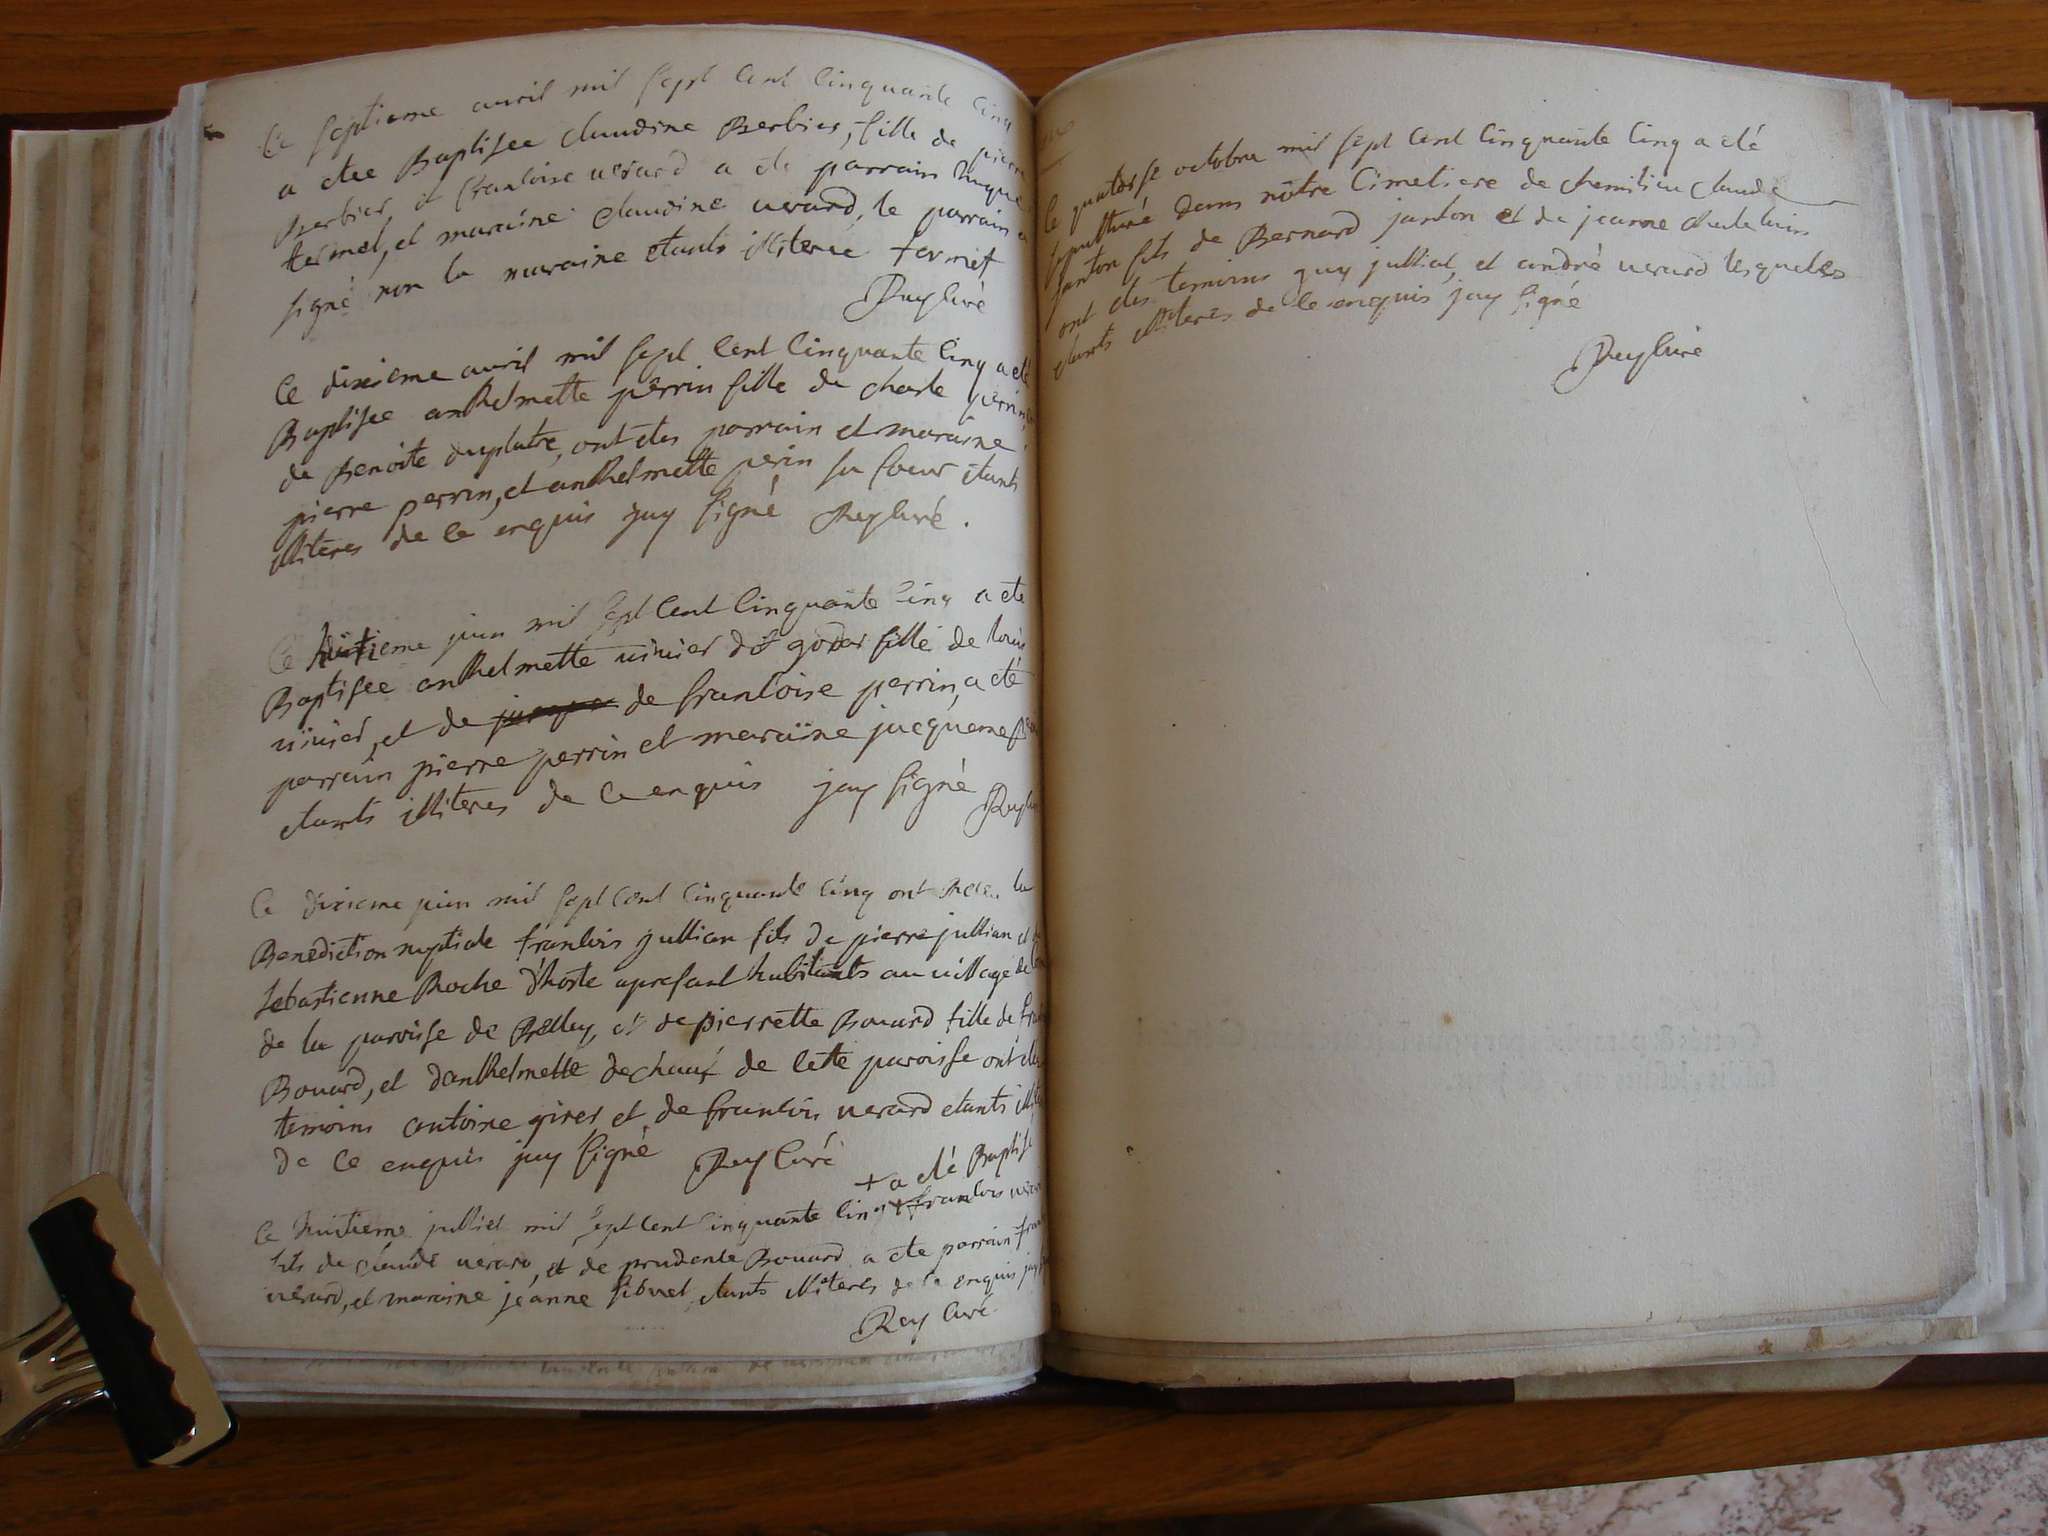 Ce septieme avril mil sept cent cinquante cinq
a etee Baptisee claudine Berbier, fille de pierre
Berbier, et francoise uerard a ete parrain
termet, et maraine claudine uerard, le parrain a
signé non la maraine etants illiteree termet
Rey Curé
Ce dixieme avril mil sept cent cinquante cinq a eté
Baptisee anthelmette perrin fille de charle perrin
de Benoite duplatre, ont etes parrain et maraine
pierre perrin, et anthelmette perin sa soeur etants
illiteres de ce enquis jay signé Rey curé.
Ce huitieme juin mil sept cent cinquante cinq a ete
Baptisee anthelmette uiuier dit godar fille de louis
uiuier, et de de francoise perrin, a eté
parrain pierre perrin et maraine jacqueme
etants illiteres de ce enquis jay signé Rey
Ce dixieme juin mil sept cent cinquante cinq ont Receu la
Benediction nuptiale francois jullian fils de pierre jullian et
sebastienne Roche d'hoste apresant habitants au uillage de
de la paroisse de Belley, et de pierrette Bouard fille de
Bouard, et d'anthelmette dechaux de cete paroisse ont etes
temoins antoine giret et de francois uerard etants
de ce enquis jay signé Rey Curé
+ a eté Baptisé
Ce huitieme julliet mil sept cent cinquante cinq + francois
fils de claude uerard, et de prudente Bouard a ete parrain
uerard, et maraine jeanne sibuet, etants illiteres de ce enquis
Rey Curé
le quatorse octobre mil sept cent cinquante cinq a eté
sepulturé dans nôtre Cimetiere de chemilieu claude
janton fils de Bernard janton et de jeanne
ont etes temoins guy julliat, et andré uerard lesqueles
etants illiteres de ce enquis jay signé
Rey Curé